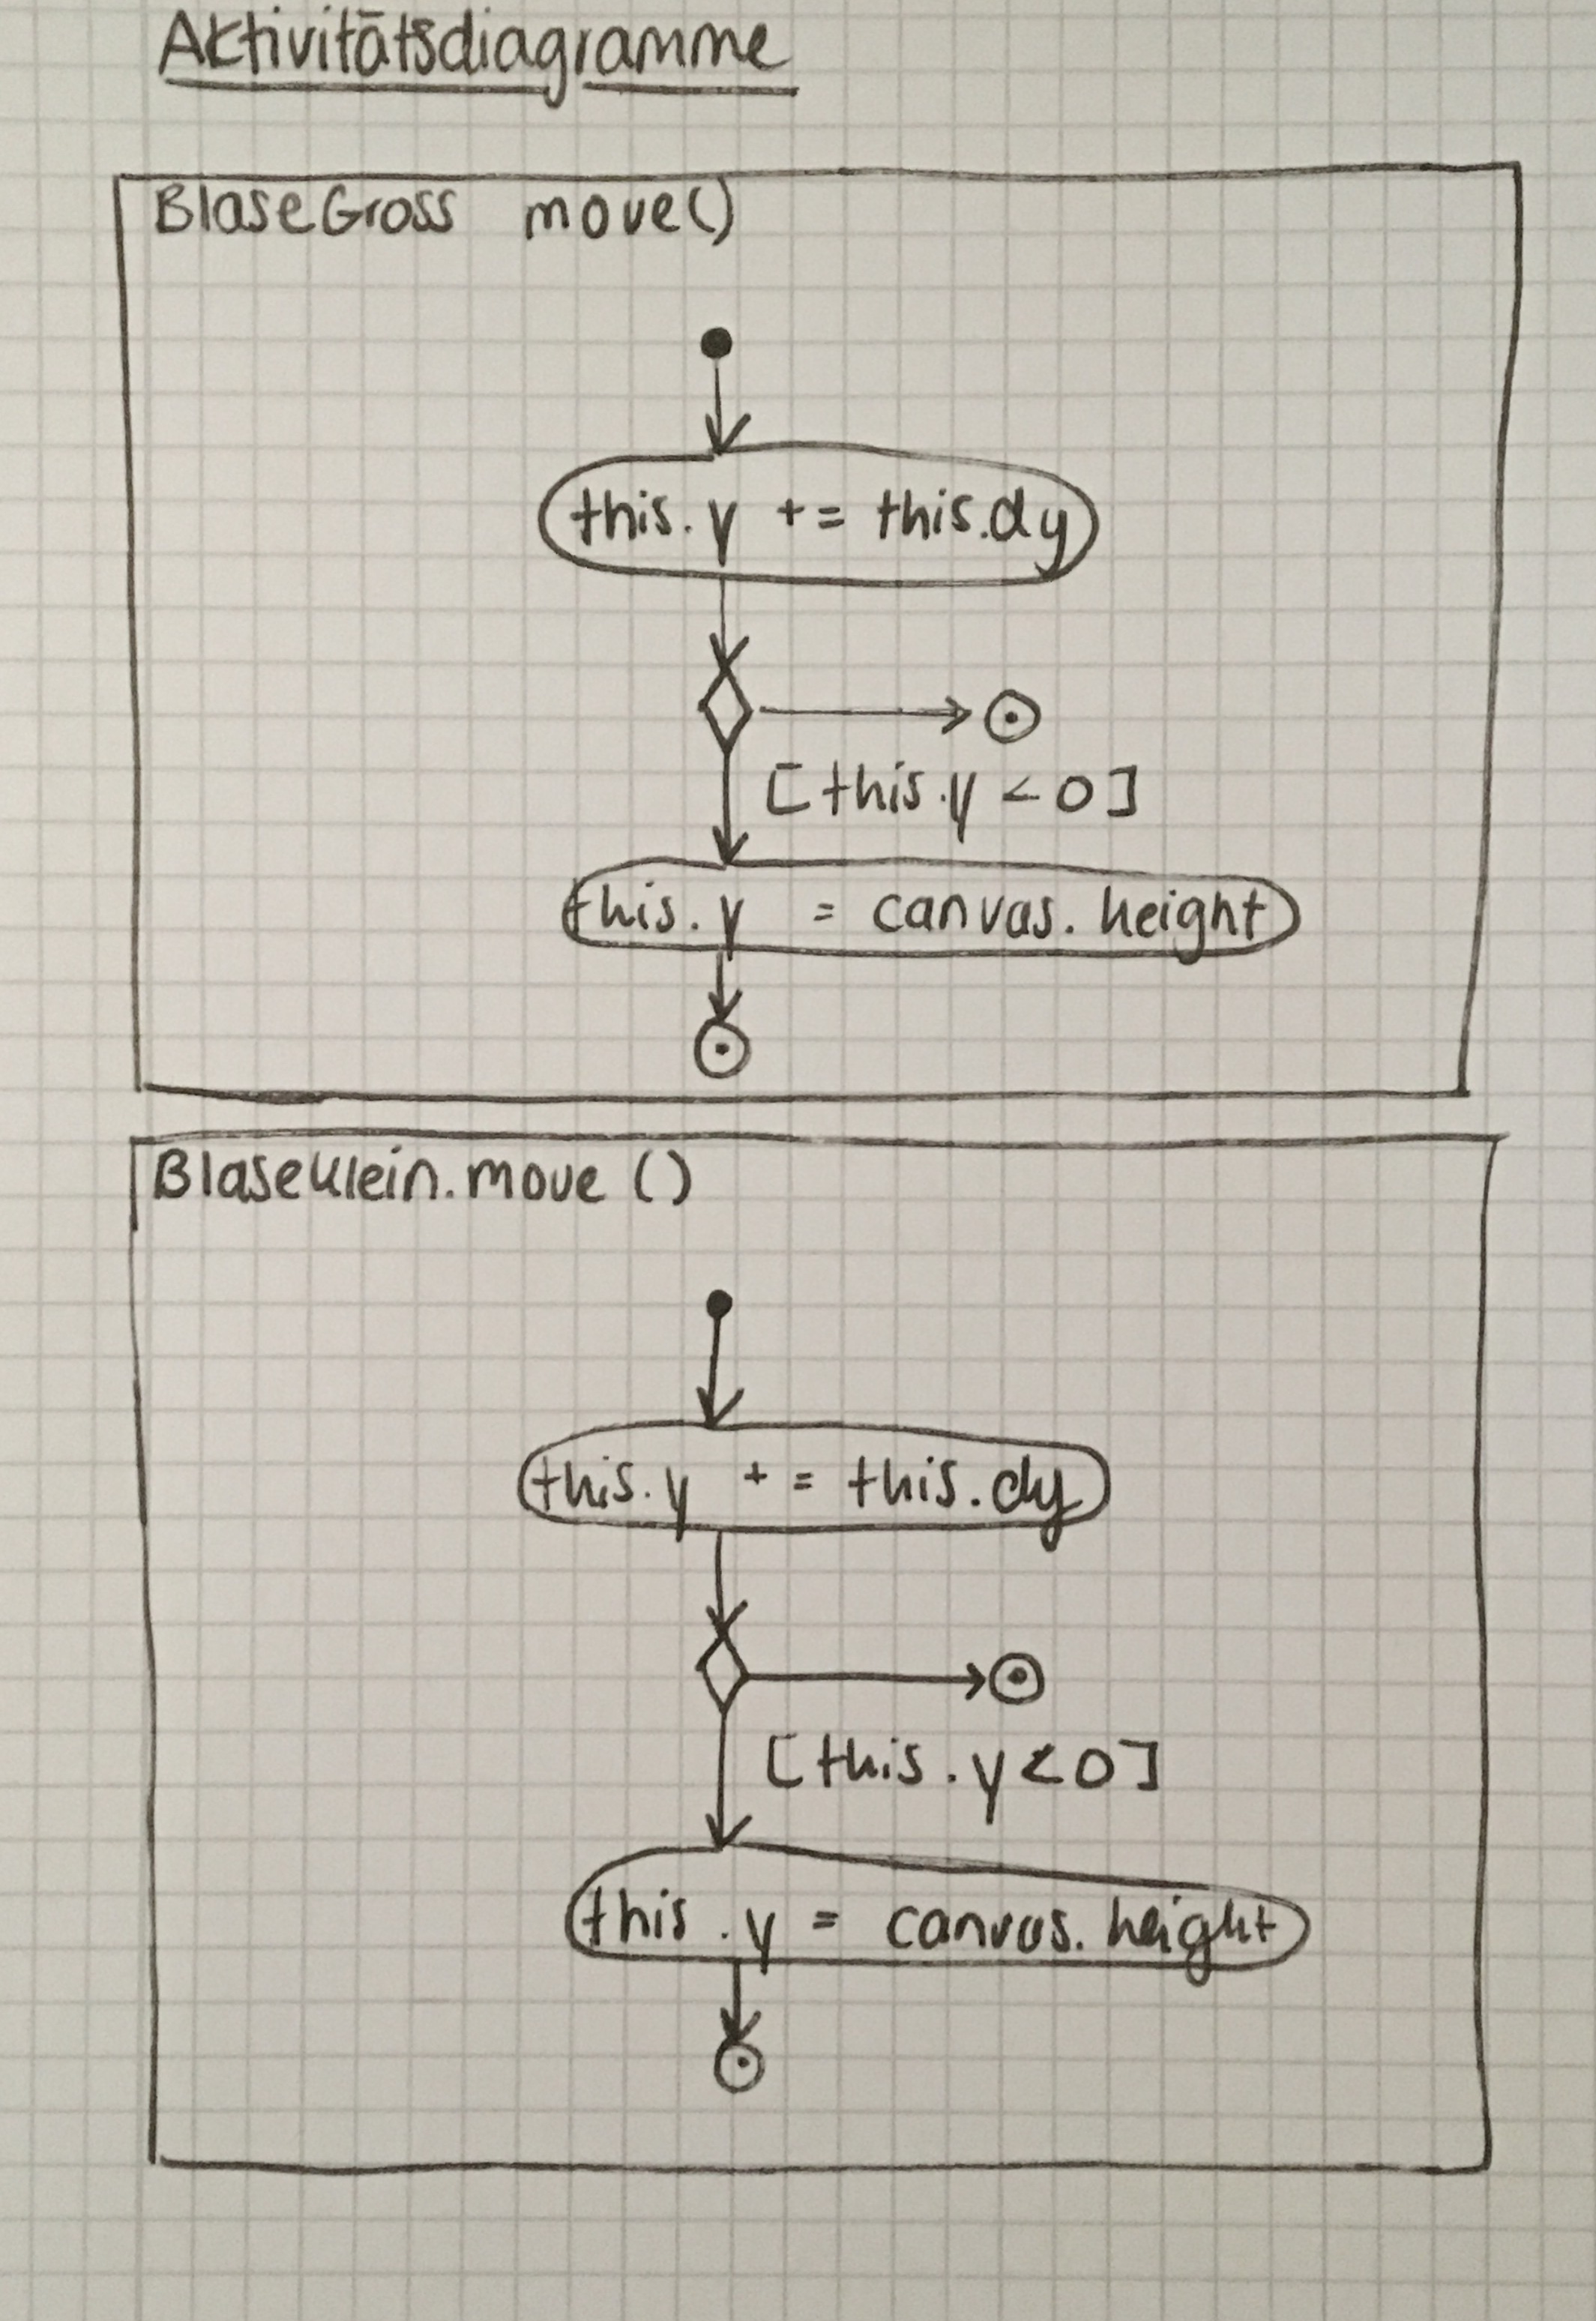 Aktivitätsdiagramme
BlaseGross move()
this.y += this.dy
[this.y < 0]
this.y = canvas.height
BlaseKlein.move ()
this.y += this.dy
[this.y < 0]
this.y = canvas.height